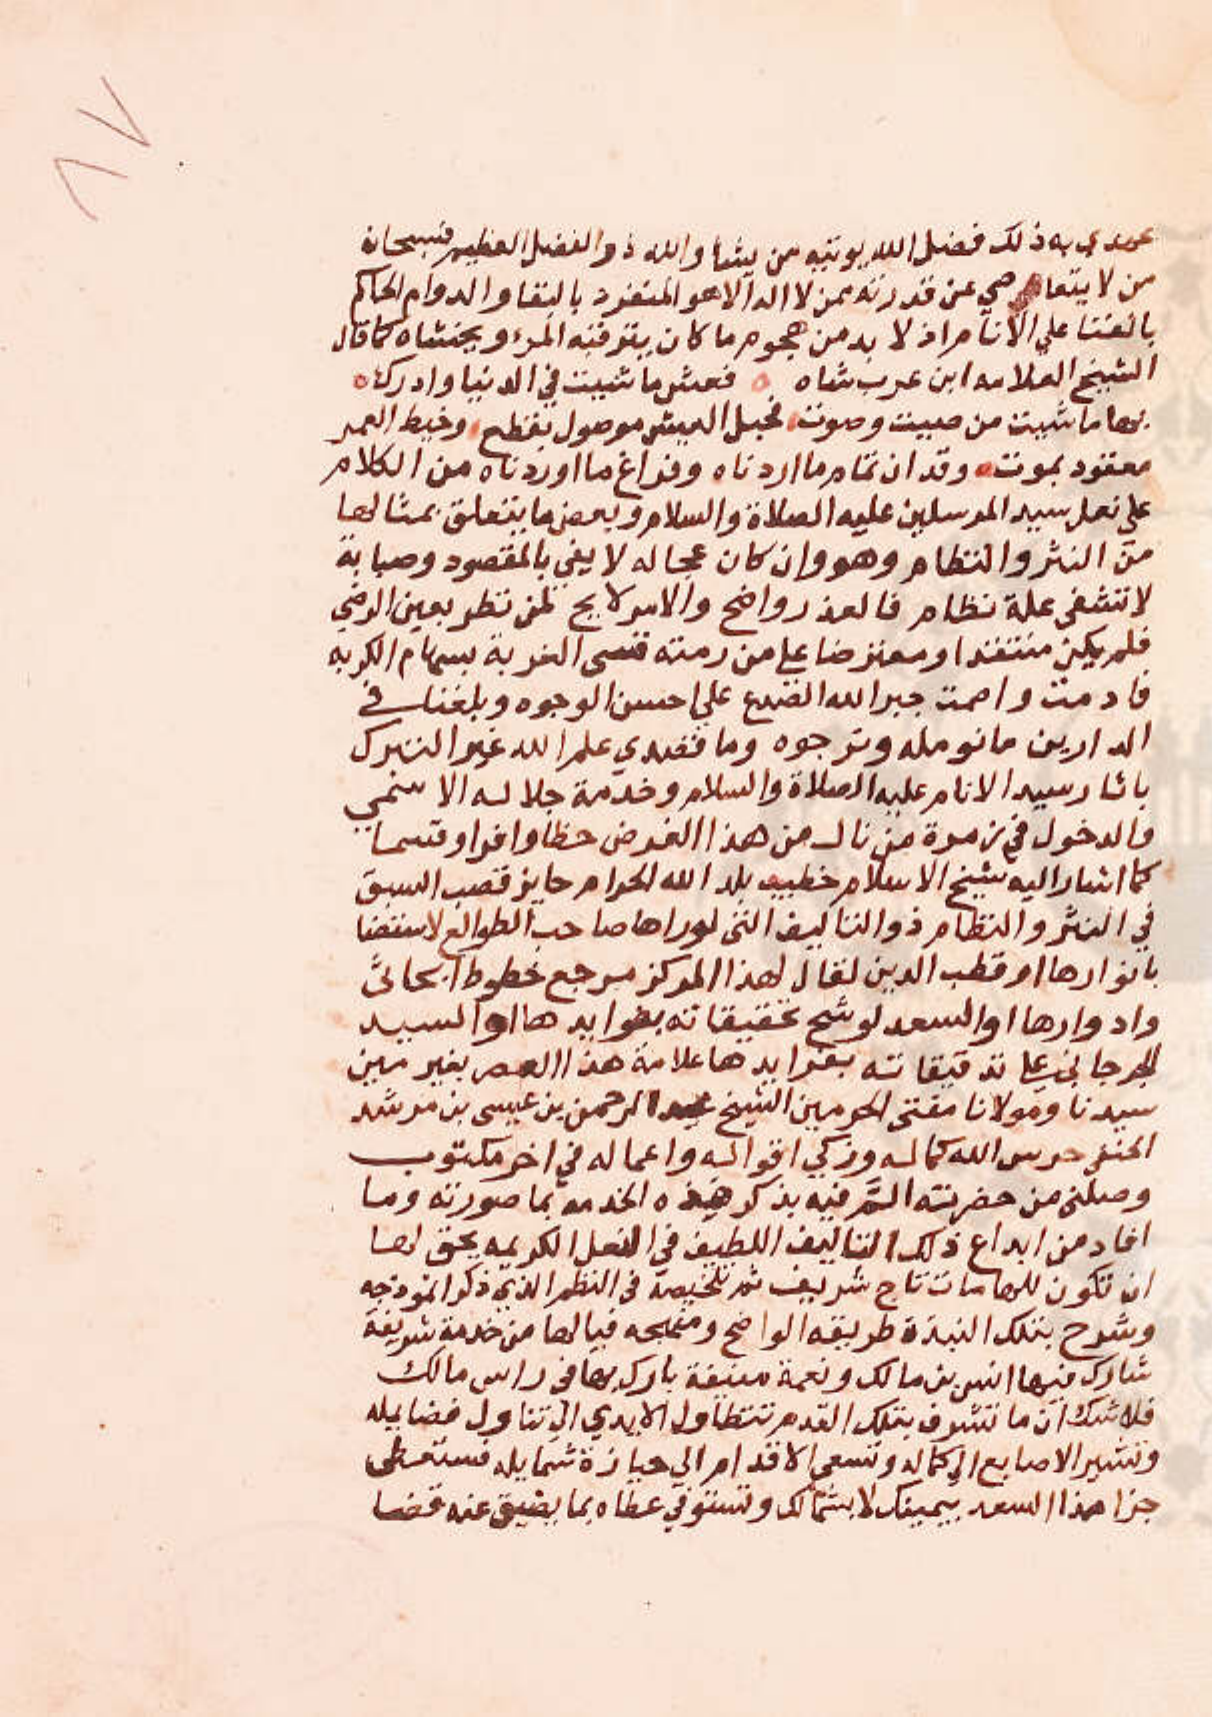 ٨٧
عهدي به ذلك فضل الله يوتيه من يشا والله ذو الفضل العظيم فسبحان
من لا يتعاصي عن قدرته ممن لا اله الا هو المنفرد بالبقا والدوام الحاكم
بالفنا علي الانام اذ لا بد من هجوم ما كان يتوقبه المرء ويخشاه كما قال
الشيخ العلامه ابن عرب شاه فعش ما شيت في الدنيا وادرك
بها ما شيت من صيت وصوت فحبل العيش موصول بقطع وخيط العمر
معقود بموت وقد ان تمام ما اردناه وفراغ ما اوردناه من الكلام
علي نعل سيد المرسلين عليه الصلاة والسلام وبعض ما يتعلق بمثالها
من النثر والنظام وهو وان كان عجاله لا يفي بالمقصود وصبابة
لا تشفي علة نظام فالعذر واضح والامر لايح لمن نظر بعين الرضي
فلم يكن منتقدا ومعترضا علي من رمته قسي الغربة بسهام الكربه
فادمت واصمت جبر الله الصدع علي احسن الوجوه وبلغنا في
الدارين ما نومله ونرجوه وما قصدي علم الله غير التبرك
باثار سيد الانام عليه الصلاة والسلام وخدمة جلاله الاسمي
والدخول في زمرة من نال من هذا الغرض حظا وافرا وقسما
كما اشار اليه شيخ الاسلام خطيب بلد الله الحرام حايز قصب السبق
في النثر والنظام ذو التاليف التي لو راها صاحب الطوالع لاستضا
بانوارها او قطب الدين لقال لهذا المركز مرجع خطوط ابحاثي
وادوارها او السعد لوشح تحقيقاته بفوايدها او السيد
الجرجاني علي تدقيقاته بفرايدها علامة هذا العصر بغير مين
سيدنا ومولانا مفتي الحرمين الشيخ عبد الرحمن بن عيسي بن مرشد
الحنفي حرس الله كماله وزكي اقواله واعماله في اخر مكتوب
وصلني من حضرته الم فيه بذكر هذه الخدمة بما صورته وما
افاد من ابداع ذلك التاليف اللطيف في النعل الكريمه يحق لها
ان تكون للهامات تاج شريف ثم تلخيصه في النظم الذي ذكر انموذجه
وشرح بتلك النبذة طريقه الواضح ومنهجه فيا لها من خدمة شريفة
شارك فيها انس بن مالك ونعمة منيفة بارك بها في راس مالك
فلا شك ان ما تشرف بتلك القدم تتطاول الايدي الي تناول فضايله
وتشير الاصابع الي كماله وتسعي الاقدام الي حيازة شمايله فستعطي
جزا هذا السعد بيمينك لا بشمالك وتستوفي عطاه بما يضيق عنه فضا